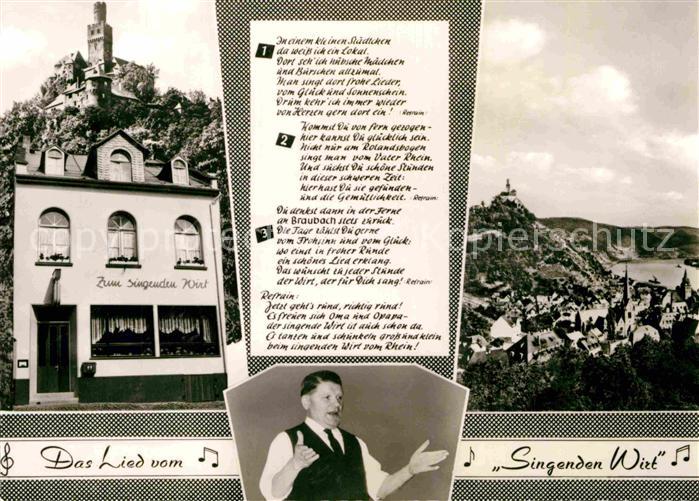 1 In einem kleinen Städtchen
da weiß ich ein Lokal.
Dort seh' ich hübsche Mädchen
und Burschen allzumal.
Man singt dort frohe Lieder,
vom Glück und Sonnenschein.
Drum kehr' ich immer wieder
von Herzen gern dort ein! (Refrain:
2 Kommst Du von fern gezogen-
hier kannst Du glücklich sein.
Nicht nur am Rolandsbogen
singt man vom Vater Rhein.
Und suchst Du schöne Stunden
in dieser schweren Zeit:
hier hast Du sie gefunden-
und die Gemütlichkeit. (Refrain:
3 Du denkst dann in der Ferne
an Braubach stets zurück.
Die Tage
vom Frohsinn und vom Glück:
wo einst in froher Runde
ein schönes Lied erklang.
Das wünscht zu jeder Stunde
der Wirt, der für Dich sang! (Refrain:
Refrain:
Jetzt geht's rund, richtig rund!
Es freuen sich Oma und Opapa-
der singende Wirt ist auch schon da.
Es tanzen und schunkeln groß und klein
beim singenden Wirt vom Rhein!
Zum singenden Wirt
Das Lied vom „Singenden Wirt"
copyright ansichtskartenschutz